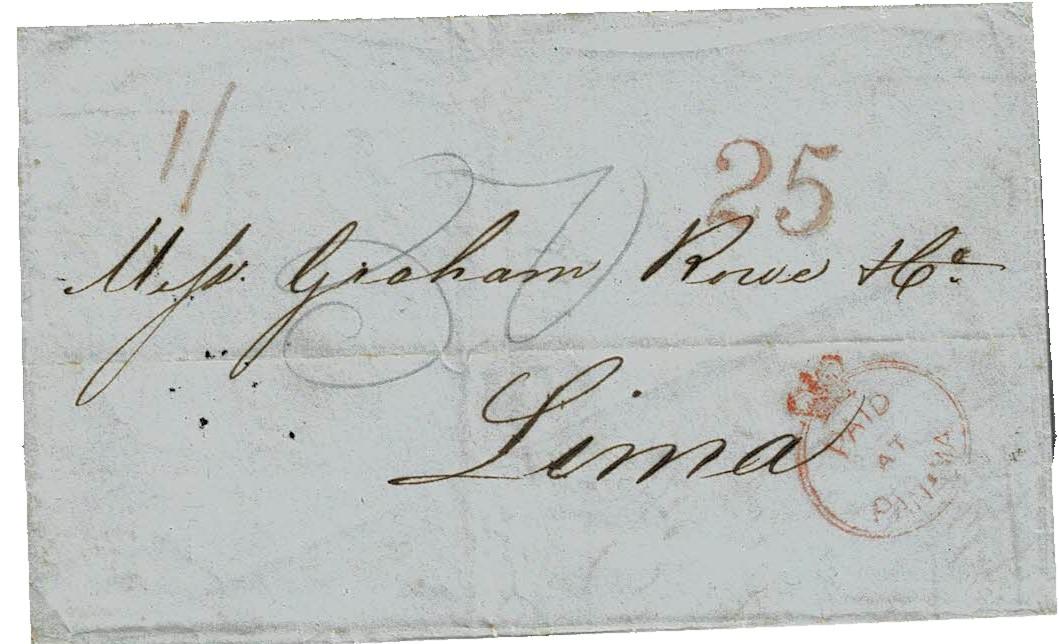 1/
25
Messrs. Graham Rowe & Co.
Lima
PAID
AT
PANAMA